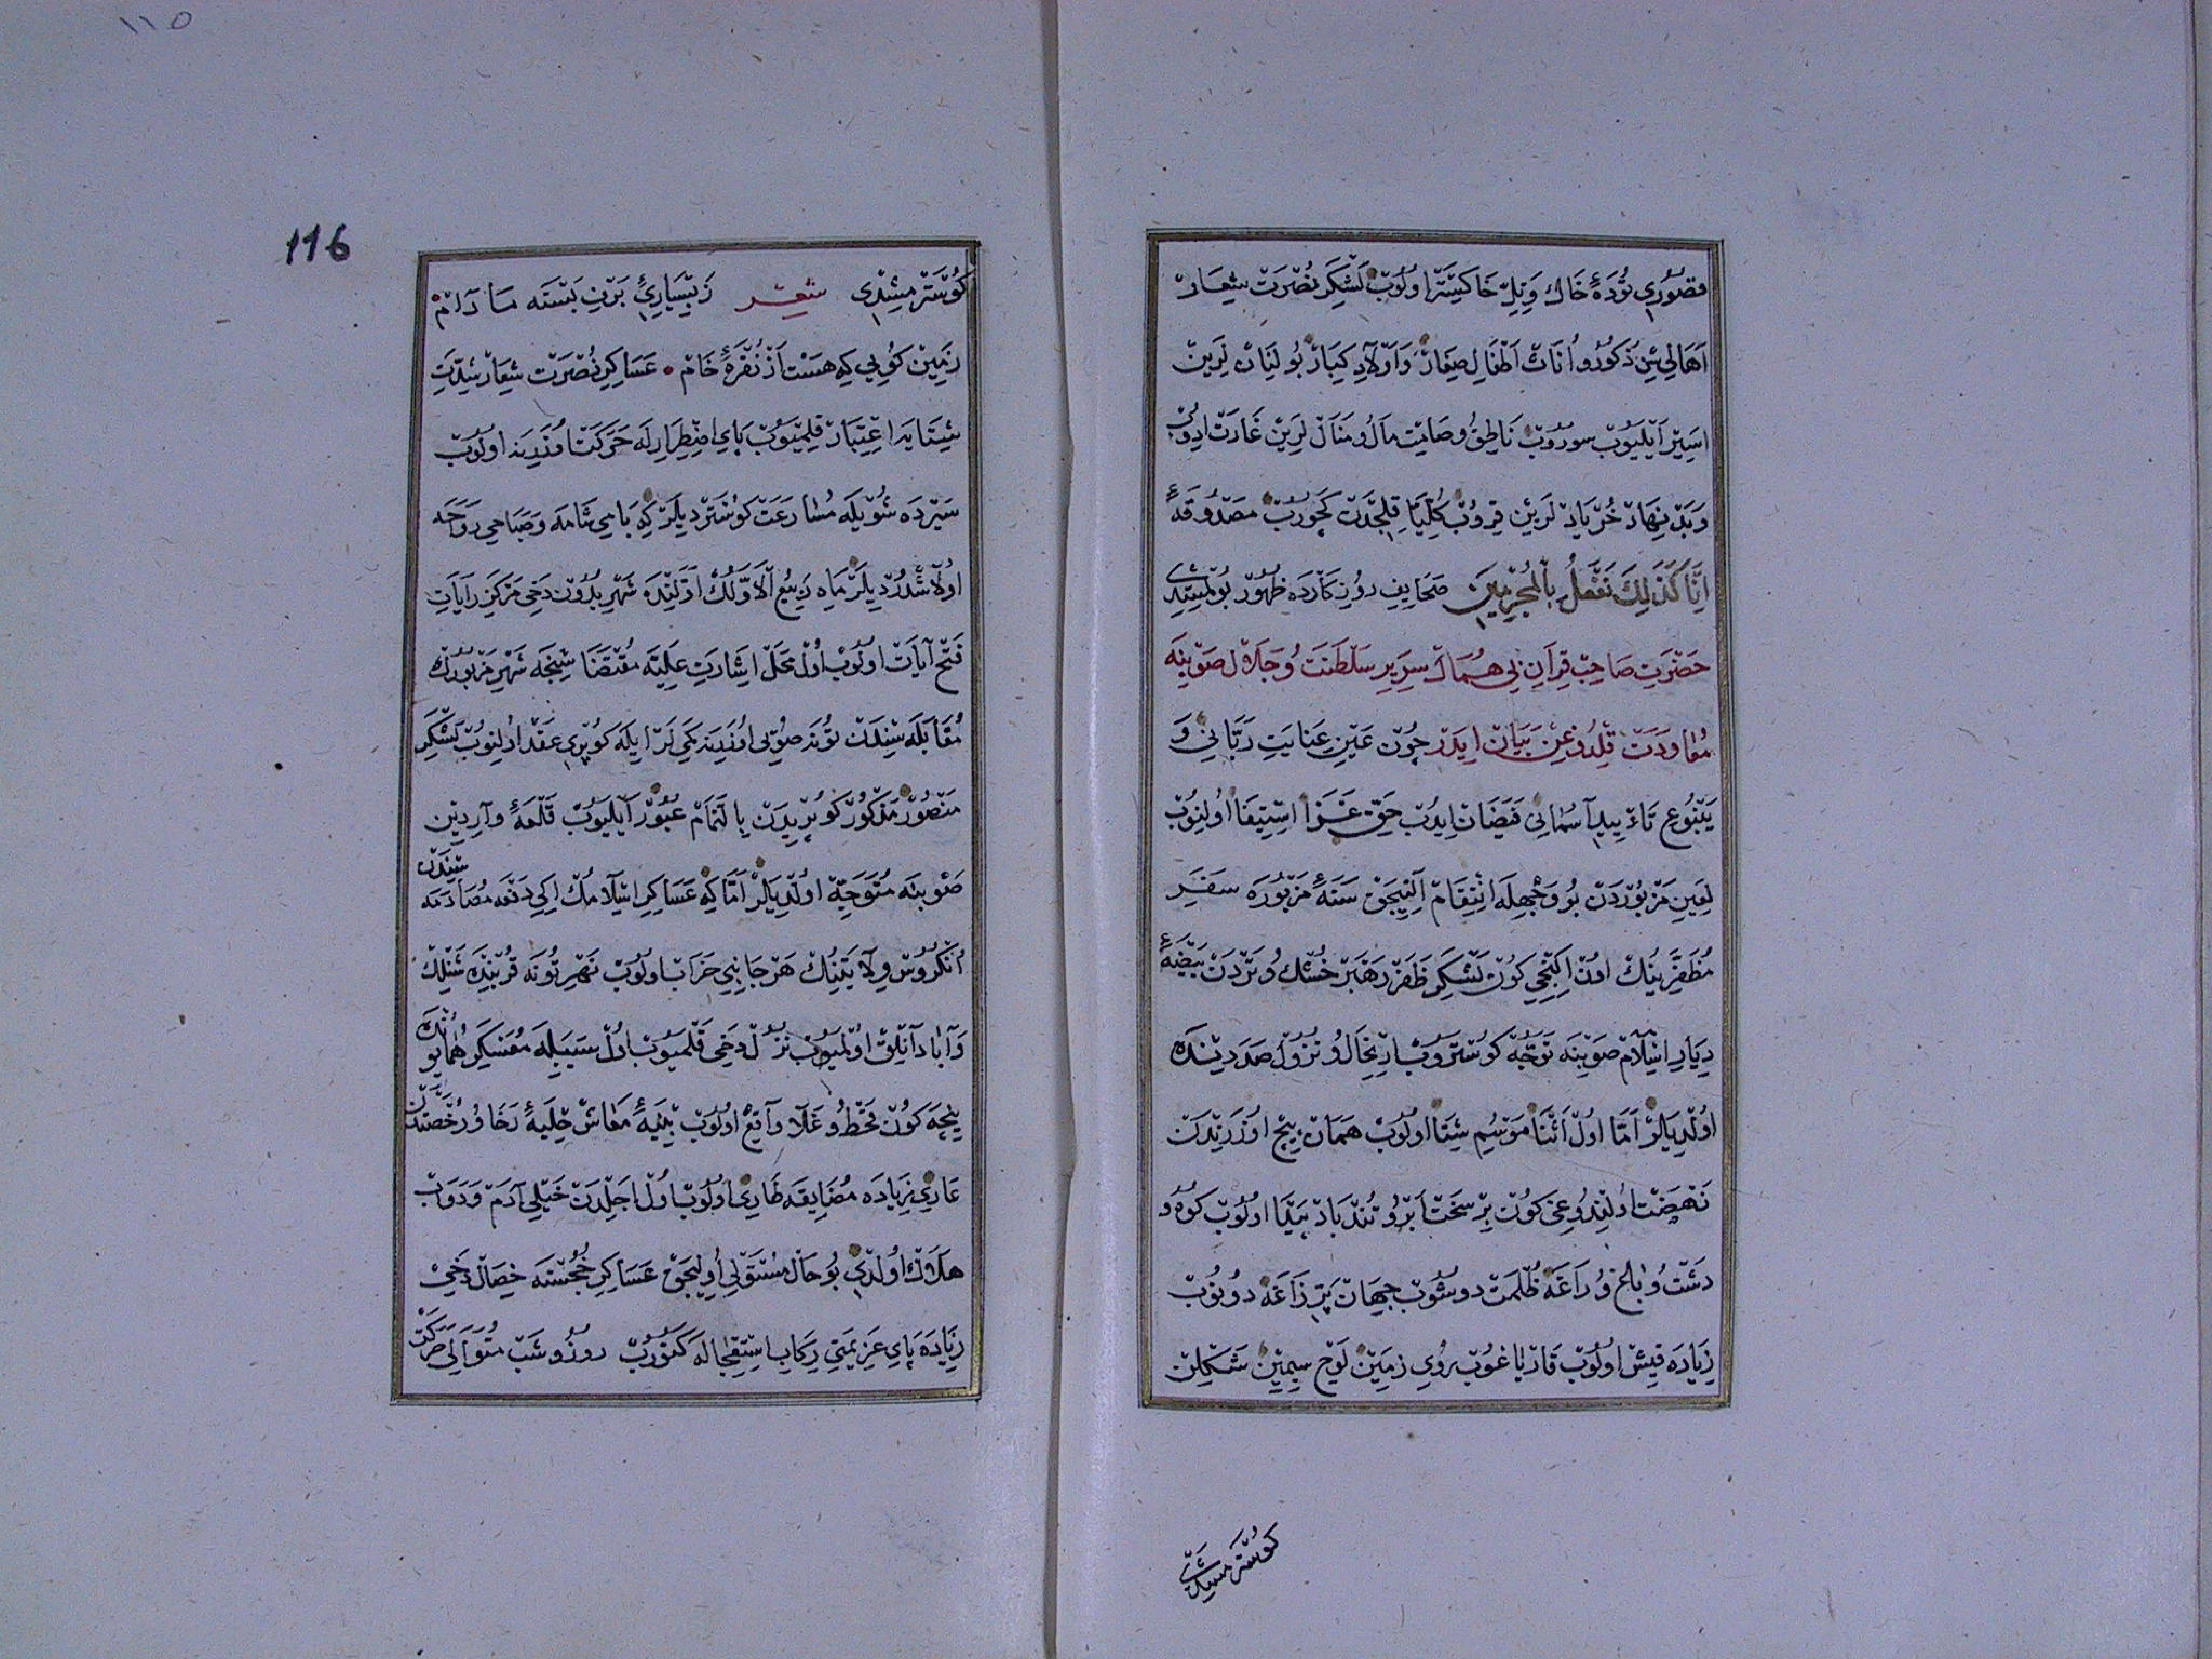 قصُورِي تُودَهٔ خَاك وَتِلِّ خَاكِسْتَرْ اولُوبْ لَشْكَرِ نُصْرَتْ شِعَارْ
اَهَالِي سِنْ ذُكُورُ و اُنَاثْ اَطْفَالِ صِغَارْ وَاَوْلَادِ كِبَارْ بُولِنَانْ لَرِينْ
اسَيِرْ اَيْلَيُوبْ سورُوبْ نَاطِقُ وصَامِت مَالُ و مَنَالْ لَرِينْ غَارَتْ ايدُوبْ
وَبَدْ نِهَادْ لَرِينْ قِرُوبْ كُلِّيًا قِلِجْدَنْ كَچُورُبْ مَصْدُوقَهٔ
اِنَّا كَذَلِكَ نَفْعَلُ بِالْمُجْرِمِينَ صَحَايِفِ روُزِكَارْدَه ظُهُورْ بُولْمِشِدِي
حَضْرَتِ صَاحِبْ قِرَانِي هُمَانْ سِرِيرِ سَلْطَنَتْ وُ جَلَال صَوْبِنَه
مُعَاودَتْ قِلْدُوغِنْ بَيَانْ ايدَرْ چُونْ عَيْنِ عِنَايَتِ رَبَّانِي وَ
يَنْبُوعِ تَاءْيِيدِ آسْمَانِي فَيَضَانْ ايدُبْ حَقِّ غَزَا اسْتِيفَا اُولِنُوبْ
لَعِينِ مَزْبُورْدَنْ بُو وَجْهِلَه اِنْتِقَامْ اَلِنِيجَقْ سَنَهٔ مَزْبُورَه سَفَرِ
مُظَفَّرِينُكْ اوُنْ اِكِنْجِي كَونْ لَشْكَرِ ظَفَرْ رَهْبَرْ خُشْكْ وُ تَرْدَنْ بَيْضَهٔ
دِيَارِ اسْلَامْ صَوْبِنَه تَوَجُّهْ كوُسْتَرُوبْ ارْتِحَالُ و نُزُولْ صَدَدِينْدَه
اوُلْدِيلَرْ اَمَّا اوُلْ اَثْنَا مَوْسُمِ شِتَا اولُوبْ هَمَانْ بِيچْ اوُزَرِنْدَنْ
نَهْضَتْ اُولِنْدُوغِي كوُنْ بِرْ سَخْتْ اَبْرُ و تُنْد بَادْ پَيْدَا اولُوبْ كوُه و
دَشْتُ وُ بَاغ وُ رَاغَه ظُلْمَتْ دوشُوبْ جِهَانْ پَرِّ زَاغَه دونُوبْ
زِيَادَه قِيشْ اولُوبْ قَارْ يَاغُوبْ رُويِ زَمِينْ لَوْحِ سِيمِينْ شَكْلِنْ
كوُسْتَرْمِشِدِي
116
١١٥
كوُسْتَرْمِشْدِي شعر زِبِسْيَارِيِّ بَرْفِ بَسْتَه مَادَامْ
زَمِينْ كوُيِي كِه هَسْت اَزْ نُقْرَهٔ خَامْ عَسَاكِرِ نُصْرَت شِعَارْ شِدَّتِ
شِتَايَه اعْتِبَارْ قِلْمَيُوبْ پَايِ اضْطِرَارِلَه حَرَكَتْ اوُزَرِنَه اولُوبْ
سَيْرْدَه شُويْلَه مُسَارَعَتْ كوُسْتَرْدِيلَرْ كِه
اوُلَاشْدُرْدِيلَرْ مَاهِ رَبِيعُ الْاَوَّلُكْ اَوَّلِنْدَه شَهْرِ بُدُونْ دَخِي مَرْكَزِ رَايَاتِ
فَتْح آيَاتْ اولُوبْ اوُلْ مَحَلّ اِشَارَتِ عَلِيَّه مُقْتَضَاسِنْجَه شَهْرِ مَزْبُورُكْ
مُقَابَلَه سِنْدَنْ تُونَه صُويِي اوُزَرِنَه كَمِي لَرْ ايلَه كوُپْرِي عَقْد اُولِنُوبْ لَشْكَرِ
مَنْصُورْ مَذْكُورْ كوُپْرِيدَنْ بِالتَّمَامْ عُبُورْ اَيْلَيُوبْ قَلْعَهٔ وَآرِدِينْ
صَوْبِنَه مُتَوَجِّهْ اولْدِيلَرْ اَمَّا كِه عَسَاكِرِ اسْلَامُكْ اِكِي دَفْعَه مُصَادَمَه سِنْدَنْ
اُنْكُرُوسْ وِلَايَتِنِكْ هَرْ جَانِبِي خَرَابْ اولُوبْ نَهْرِ تُونَه قُرْبِنْدَه شَنْلِكْ
وَآبَادَانْلِقْ اوُلْمَيُوبْ نُزُلْ دَخِي قَلْمَيُوبْ اوُلْ سَبَبْلَه مُعَسْكَرِ هُمَايُونْدَه
نِيچَه كوُنْ قَحْطُ و غَلَا وَاقِعْ اولُوبْ بِنْيَهٔ مَعَاشْ حِلْيَهٔ رَخَا وُ رُخْصَتْدَنْ
عَارِي زِيَادَه مُضَايِقَه طَارِي اولُوبْ اوُلْ اجَلْدَنْ خَيْلِي آدَمْ وَدَوَابْ
هَلَاكْ اوُلْدِي بُو حَالْ مُسْتَوْلِي اُولِيجَقْ عَسَاكِرِ خُجُسْتَه خِصَالْ دَخِي
زِيَادَه پَايِ عَزِيمَتِي رِكَابِ اسْتِعْجَالَه كَتُورُبْ روُزُ و شَبْ مُتَوَالِي حَرَكَتْ